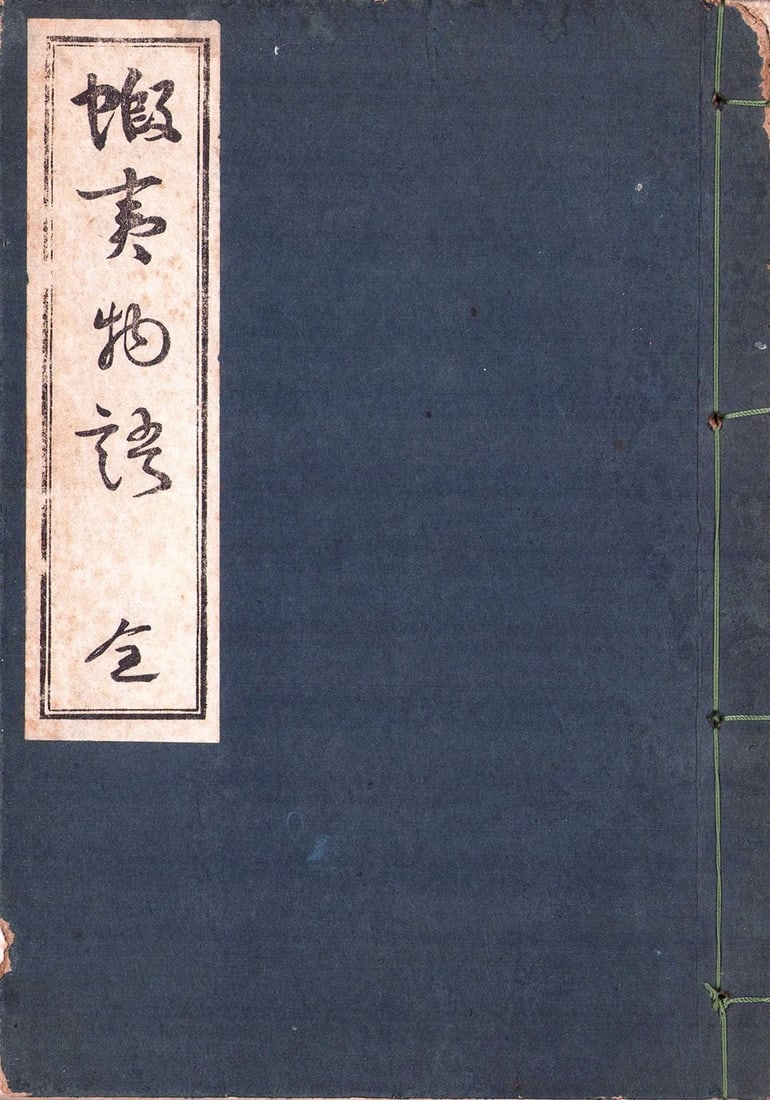 蝦夷物語 全